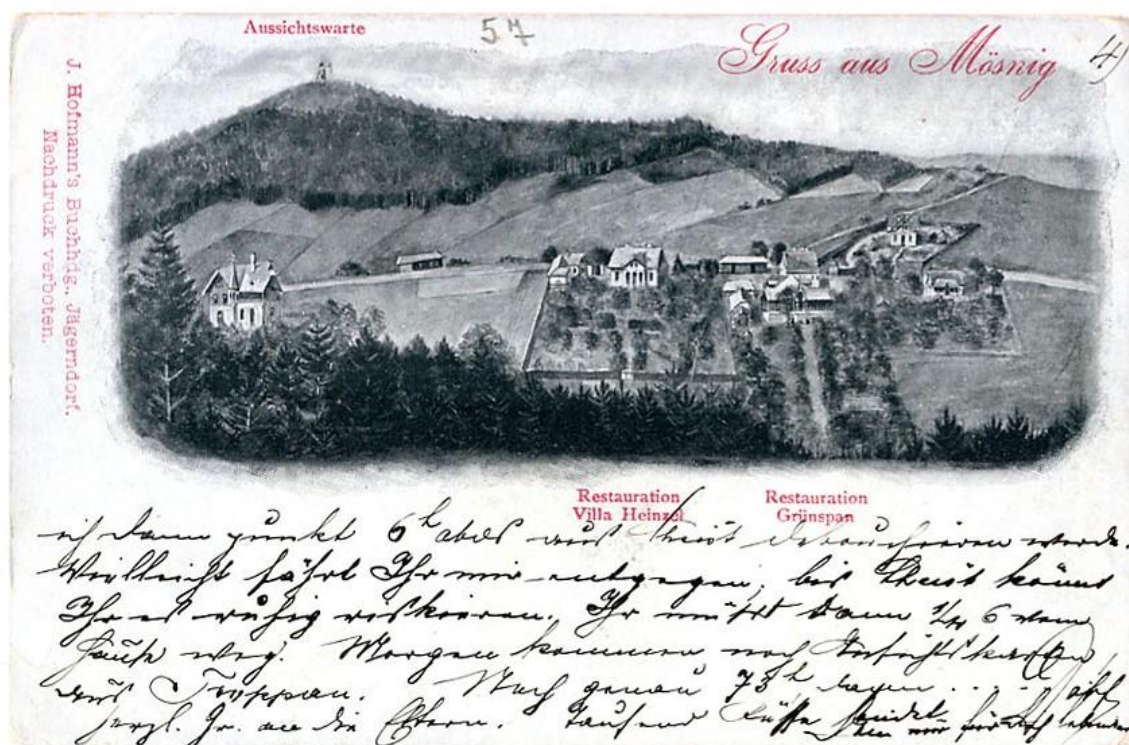 Aussichtswarte
57
Gruss aus Mösnig
4)
J. Hofmann's Buchhdg., Jägerndorf.
Nachdruck verboten.
Restauration
Villa Heinzel
Restauration
Grünspan
ich dann punkt 6h abds aus debouchieren werde.
Vielleicht fährt Ihr mir entgegen, bis könnt
Ihr es ruhig riskieren. Ihr müßt dann 1/4 6 vom
Hause weg. Morgen kommen noch Ansichtskarten
aus Troppau. Noch genau 73h, dann ....
herzl. Gr. an die Eltern. Tausend Küsse sendet